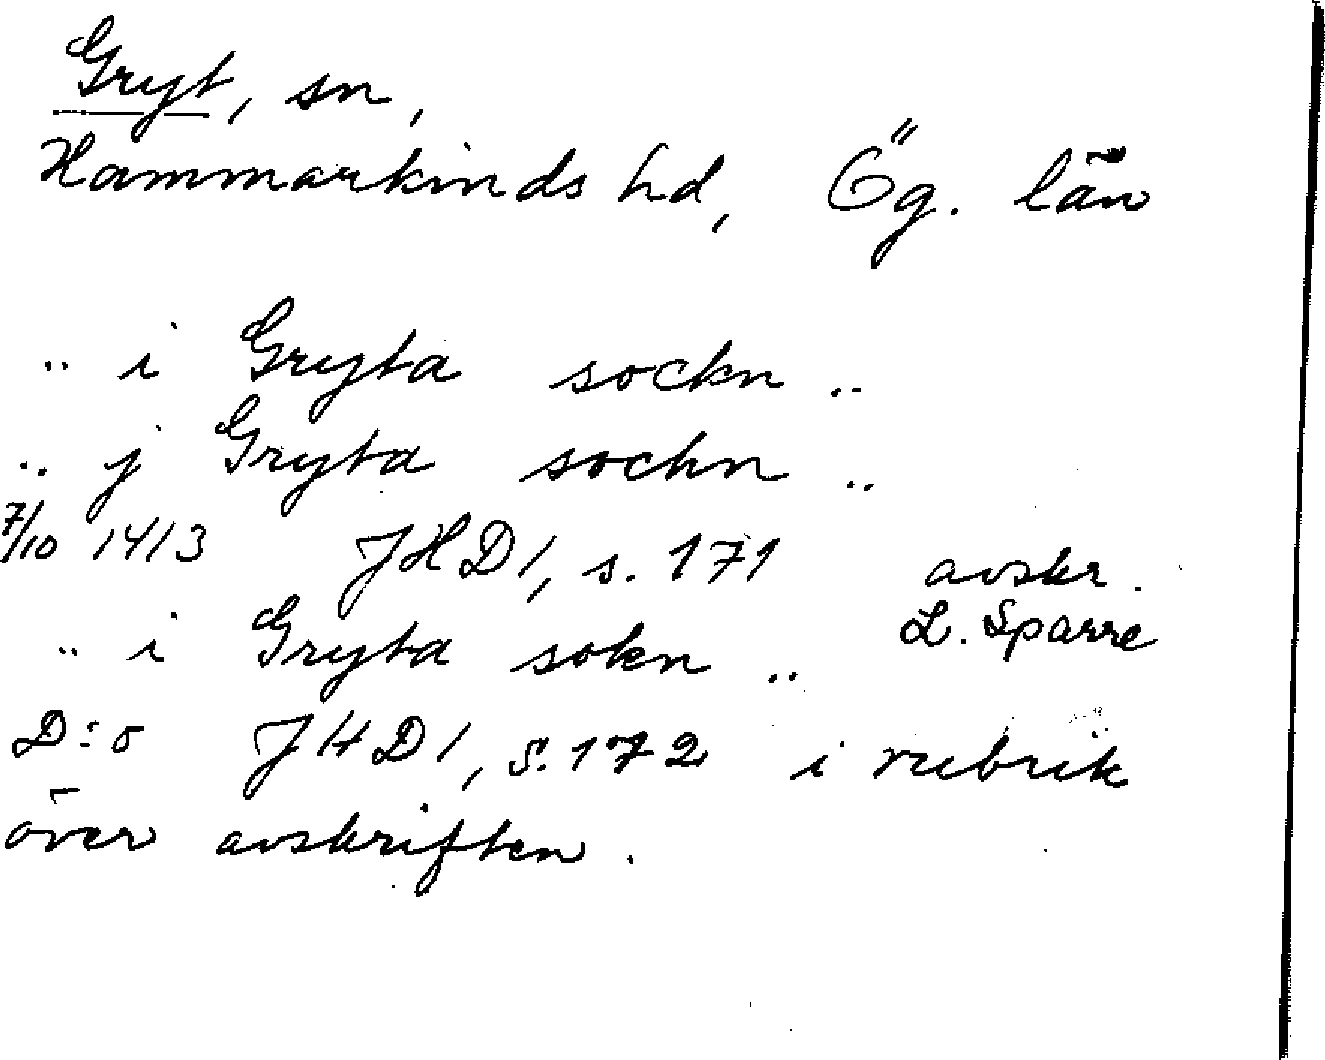 Gryt, sn,
Hammarkinds hd, Ög. län
.. i Gryta sockn ..
.. j Gryta sochn ..
7/10 1413 JHD 1, s. 171 avskr.
L. Sparre
.. i Gryta sokn ..
D:o JHD 1, s. 172 i rubrik
över avskriften.